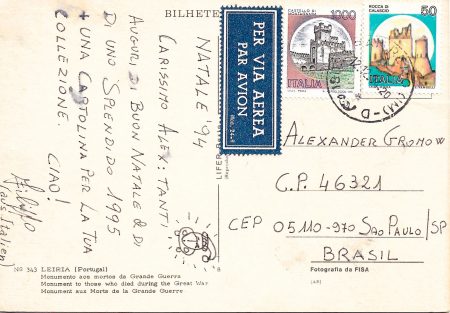 BILHETE
NATALE '94
CARISSIMO ALEX: TANTI
AUGURI DI BUON NATALE & DI
DI UNO SPLENDIDO 1995
+ UNA CARTOLINA PER LA TUA
COLLEZIONE. CIAO!
(aus Italien)
PER VIA AEREA
PAR AVION
1000
ITALIA
50
ROCCA DI
CALASCIO
ITALIA
ALEXANDER GROMOW
C.P. 46321
CEP 05110-970 SAO PAULO/SP
BRASIL
Nº 343 LEIRIA (Portugal)
Monumento aos mortos da Grande Guerra
Monument to those who died during the Great War
Monument aux Morts de la Grande Guerre
Fotografia da FISA